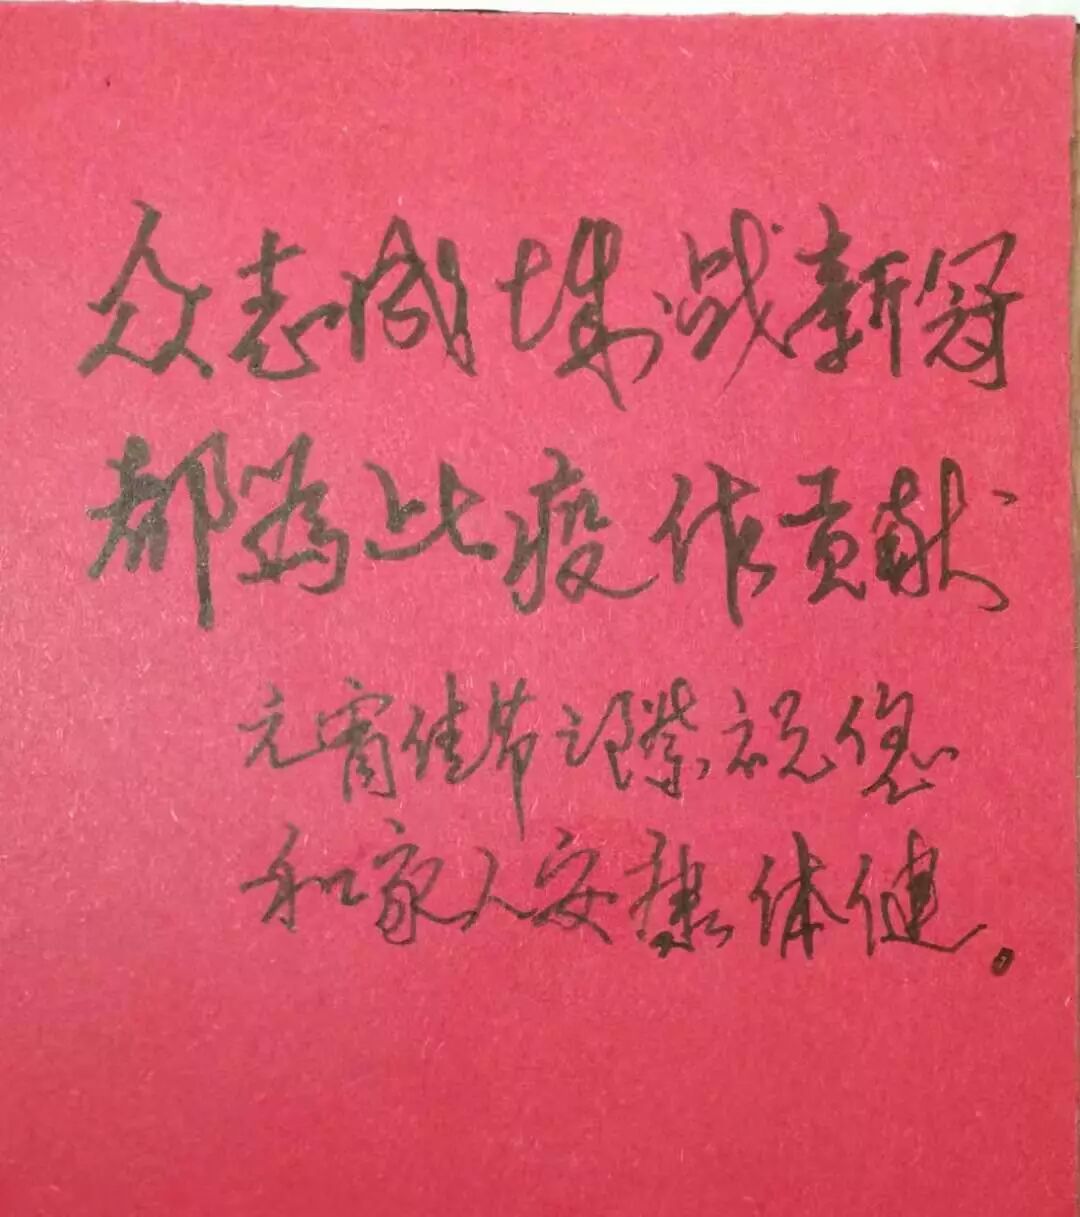 众志成城战新冠
都為此疫作贡献
元宵佳节之際祝您
和家人安康体健。